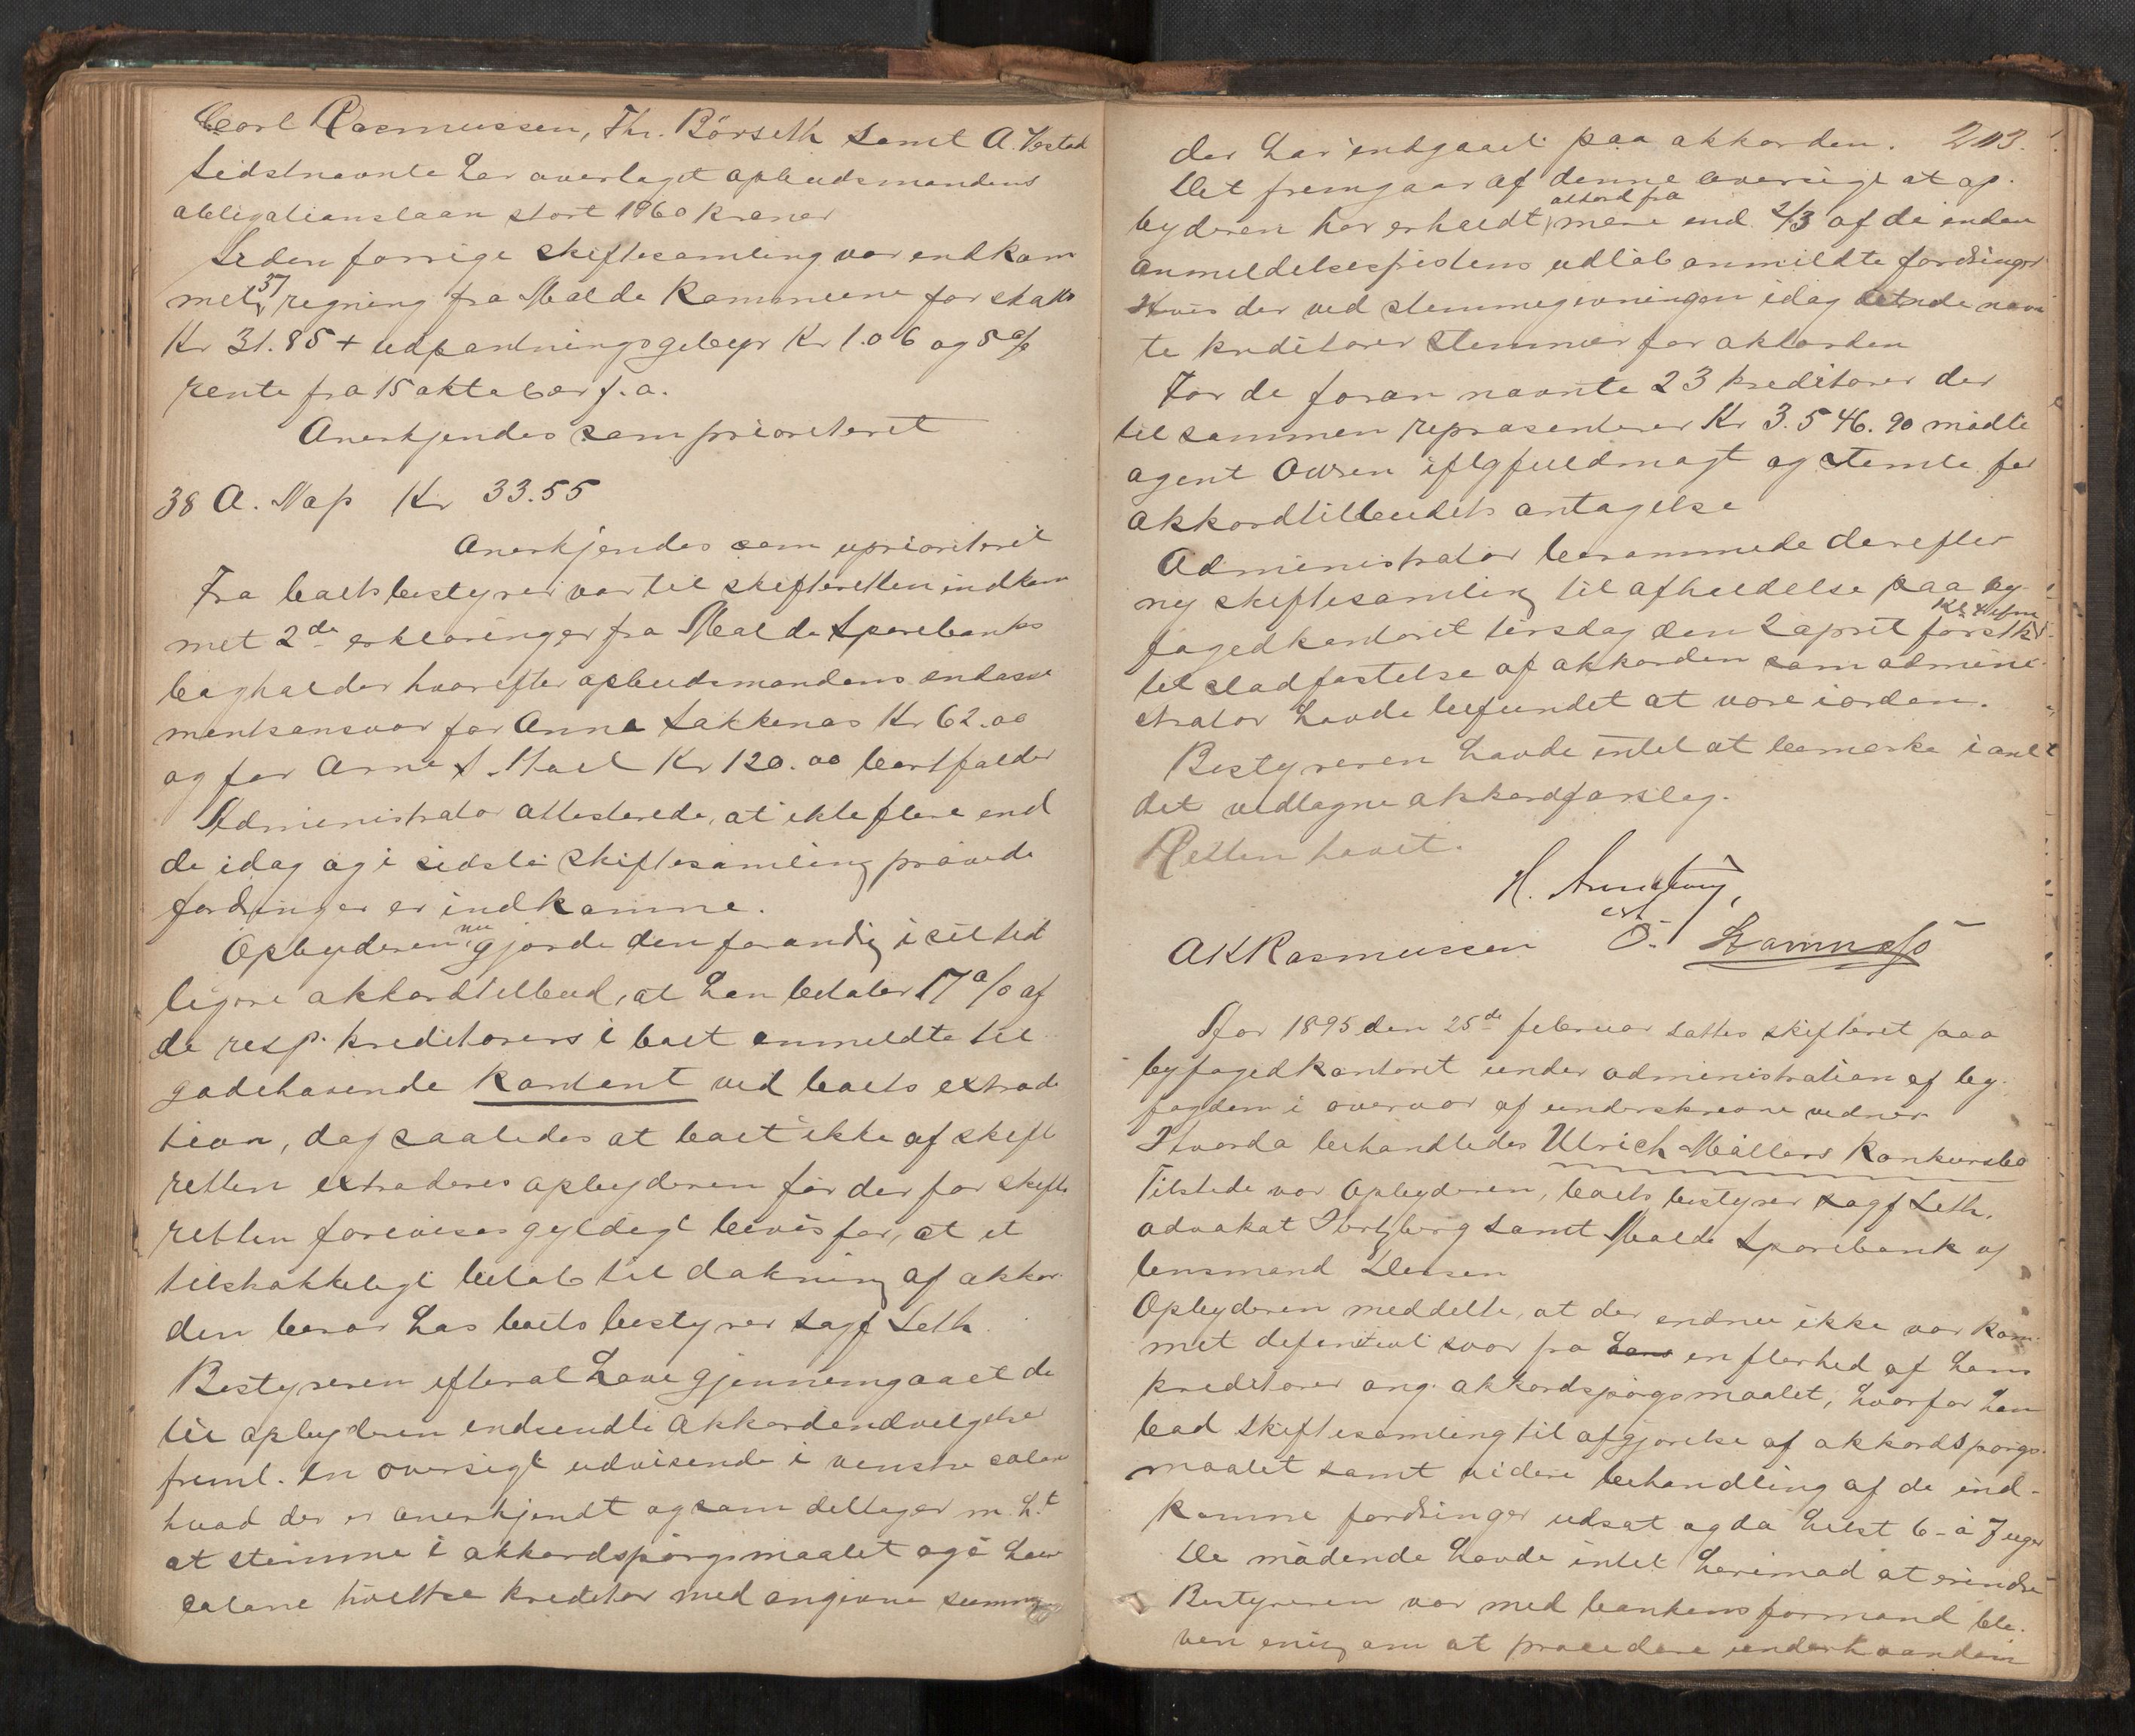 Carl Rasmussen, Thr. Börseth samt A. Vestad
Sidstnævnte har overtaget opbudsmandens
obligationslaan stort 1960 kroner
Siden forrige skiftesamling var indkom
met 37 regning fra Molde Kommune for skatt
Kr 31.85 + udpantningsgebyr Kr 1.06 og 5 %
rente fra 15 oktober f.a.
Anerkjendes som prioriteret
38 A. Nap Kr 33.55
Anerkjendes som uprioriteret
Fra boets bestyrer var til skifteretten indkom
met 2de erklæringer fra Molde Sparebanks
bogholder hvorefter opbudsmandens endosse
mentsansvar for Anna Sakkenæs Kr 62.00
og for Arne S. Kr 120.00 bortfalder
Administrator attesterede, at ikke flere end
de idag og i sidste skiftesamling prøvede
fordringer er indkomne.
Opbyderen nu gjorde den forandring i sit tid
ligere akkordtilbud, at han betaler 17 % af
de resp. kreditorers i boet anmeldte til
godehavende kontant ved boets extradi
tion, dog saaledes at boet ikke af skift
retten extraderes opbyderen før der for skifte
retten forevises gyldigt bevis for, at et
tilstrækkeligt beløb til dækning af akkor
den beror hos boets bestyrer sagf Leth
Bestyreren efter at have gjennemgaaet de
til opbyderen indsendte akkordindvilgelser
freml. en oversigt udvisende i venstre colon
hvad der er anerkjendt og som deltager m. h.t
at stemme i akkordspørgsmaalet og i høire
colone hvilke kreditor med angivne summer
der har indgaaet paa akkorden. 203.
Det fremgaar af denne oversigt at op-
byderen har erholdt akkord fra mere end 2/3 af de inden
anmeldelsesfristens udløb anmeldte fordringer
Hvis der ved stemmegivningen idag nævn
te kreditorer stemmer for akkorden
For de foran nævnte 23 kreditorer der
tilsammen repræsenterer Kr 3.546.90 mødte
agent Owren iflg fuldmagt og stemte for
akkordtilbudets antagelse
Administrator berammede derefter
ny skiftesamling til afholdelse paa by
fogedkontoret tirsdag den 2 april førstk Kl. 4 efm
til stadfæstelse af akkorden som admini-
strator havde befundet at være iorden.
Bestyreren havde intet at bemærke i anl
det vedtagne akkordforslag.
Retten hævet.
H.
cst
AKRasmussen O.
Aar 1895 den 25de februar sattes skifteret paa
byfogedkontoret under administration af by-
fogden i overvær af underskrevne vidner
Hvorda behandledes Ulrich Møllers Konkursbo
Tilstede var Opbyderen, boets bestyrer sagf Leth.
advokat Hertzberg samt Molde Sparebank v/
lensmand
Opbyderen meddelte, at der endnu ikke var kom
met definitivt svar fra hans en flerhed af hans
kreditorer ang. akkordspørgsmaalet, hvorfor han
bad skiftesamling til afgjørelse af akkordspørgs-
maalet samt videre behandling af de ind-
komne fordringer udsat og da helst 6 à 7 uger
De mødende havde intet herimod at erindre
Bestyreren var med bankens formand ble-
ven enig om at procedere underhaanden